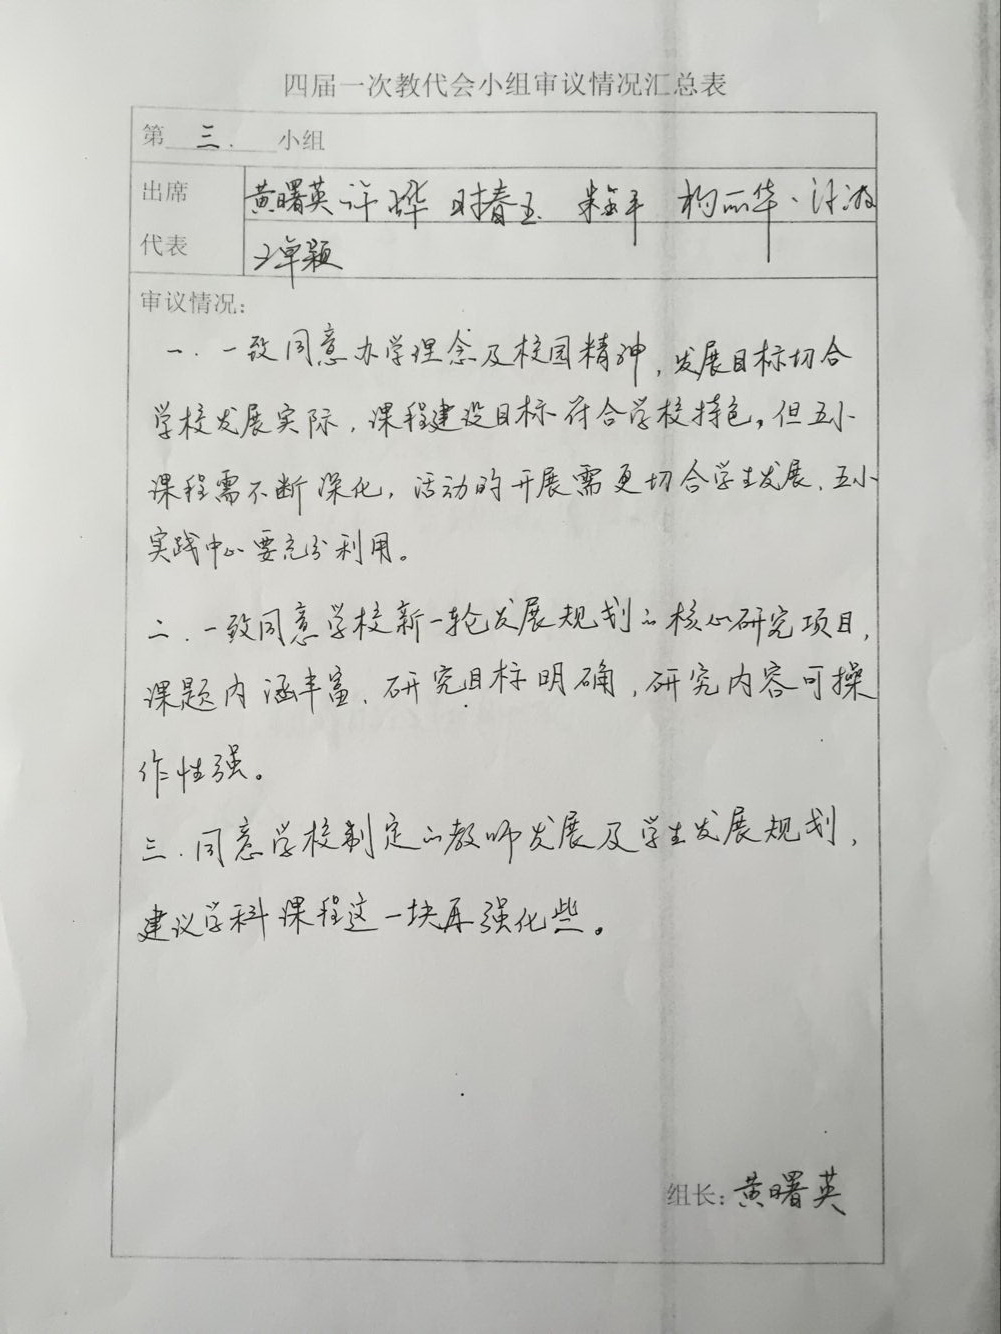 四届一次教代会小组审议情况汇总表
第 三. 小组
出席 黄曙英 许 时春玉 朱金平 柯丽华、
代表 卓颖
审议情况:
一. 一致同意办学理念及校园精神, 发展目标切合
学校发展实际, 课程建设目标符合学校特色, 但五小
课程需不断深化, 活动的开展需更切合学生发展、五小
实践中心要充分利用。
二. 一致同意学校新一轮发展规划的核心研究项目,
课题内涵丰富、研究目标明确, 研究内容可操
作性强。
三. 同意学校制定的教师发展及学生发展规划,
建议学科课程这一块再强化些。
组长: 黄曙英